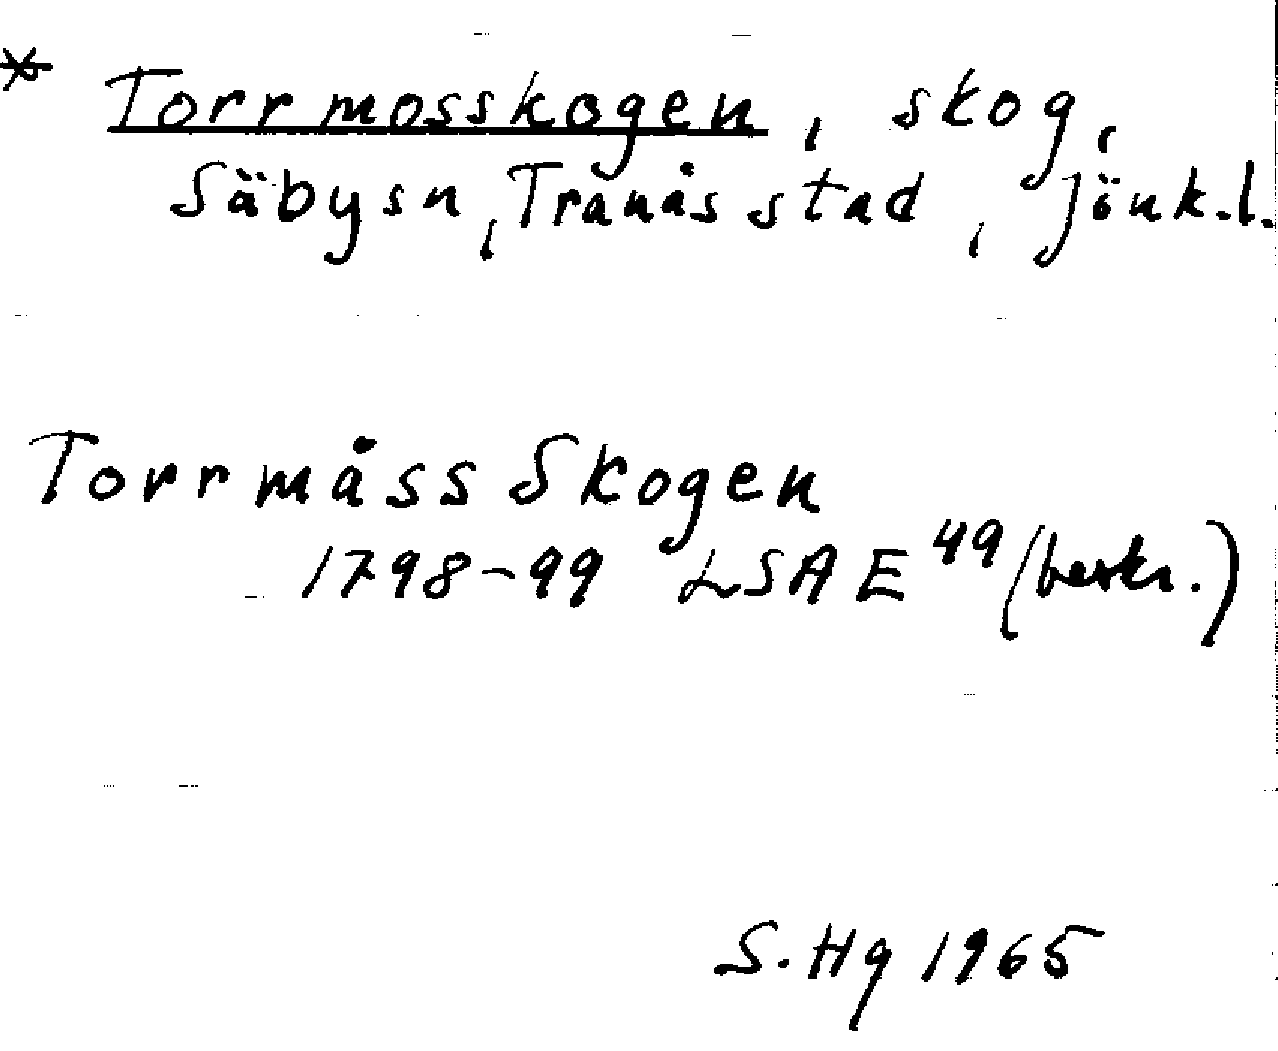 * Torrmosskogen, skog,
Säbysn, Tranås stad, Jönk.l.
Torrmåss Skogen
1798-99 LSA E 49 (beskr.)
S. Hg 1965